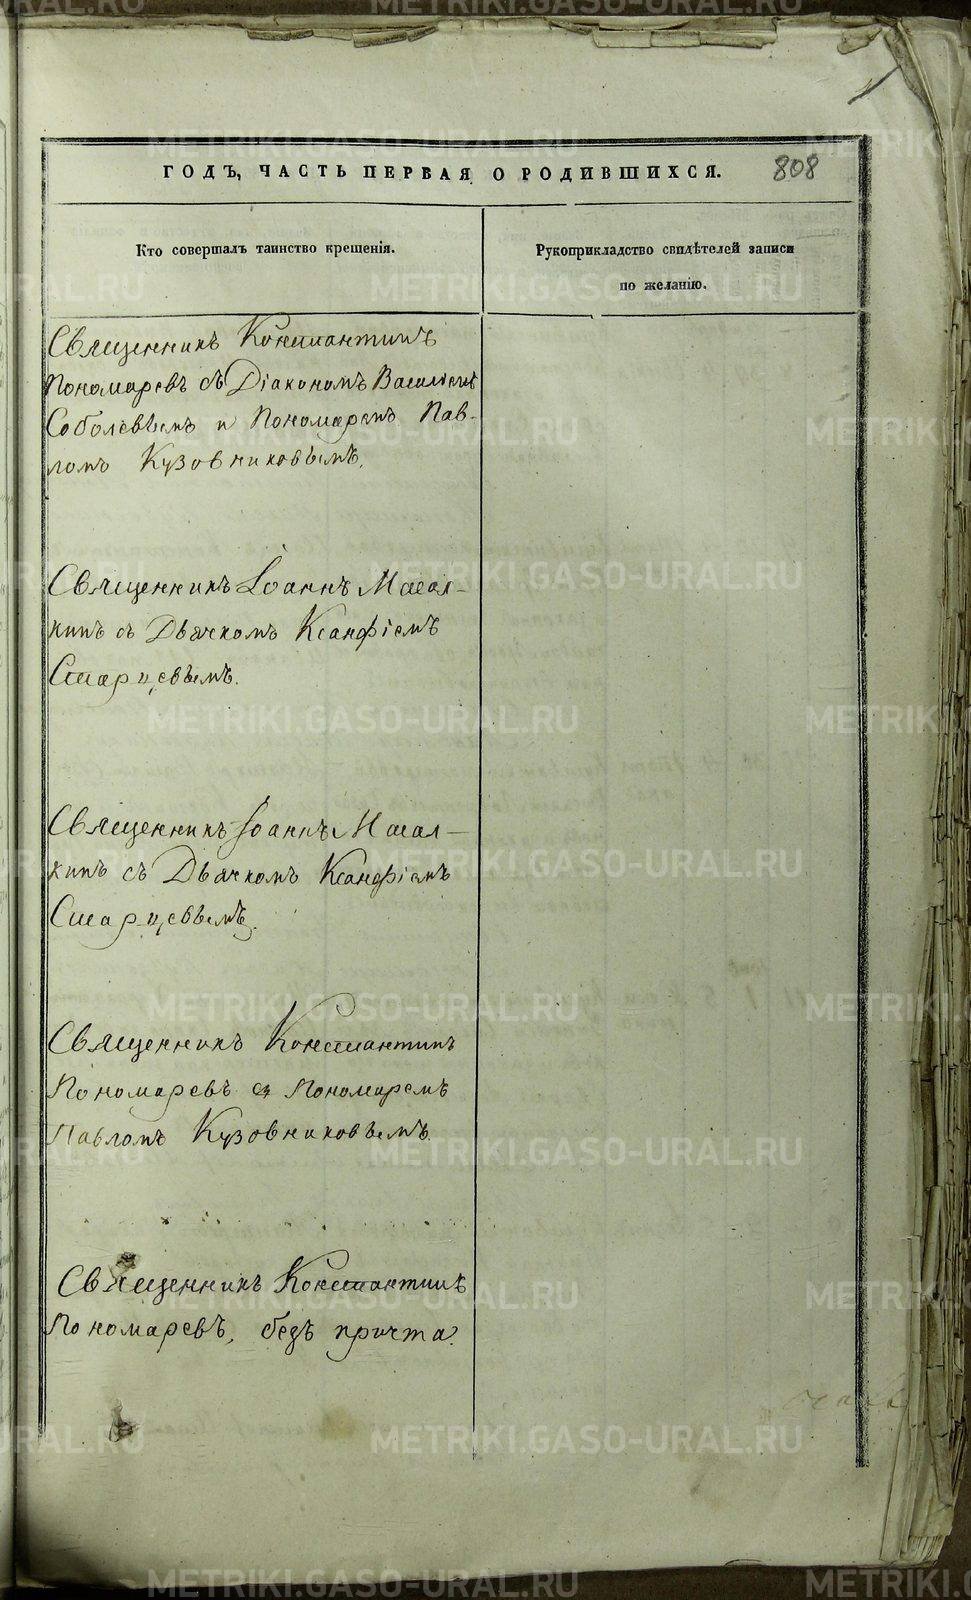 ГОДЪ, ЧАСТЬ ПЕРВАЯ О РОДИВШИХСЯ. 808
Кто совершалъ таинство крещенія.
Рукоприкладство свидѣтелей записи
по желанію.
Священникъ Константинъ
Пономаревъ съ Діакономъ Василіемъ
Соболевымъ и Пономаремъ Пав-
ломъ Кузовниковымъ.
Священникъ Іоаннъ Масал-
кинъ съ Дьячкомъ Ксанфіемъ
Старцевымъ.
Священникъ Іоаннъ Масал-
кинъ съ Дьячкомъ Ксанфіемъ
Старцевымъ.
Священникъ Константинъ
Пономаревъ съ Пономаремъ
Павломъ Кузовниковымъ.
Священникъ Константинъ
Пономаревъ, безъ причта.
METRIKI.GASO-URAL.RU